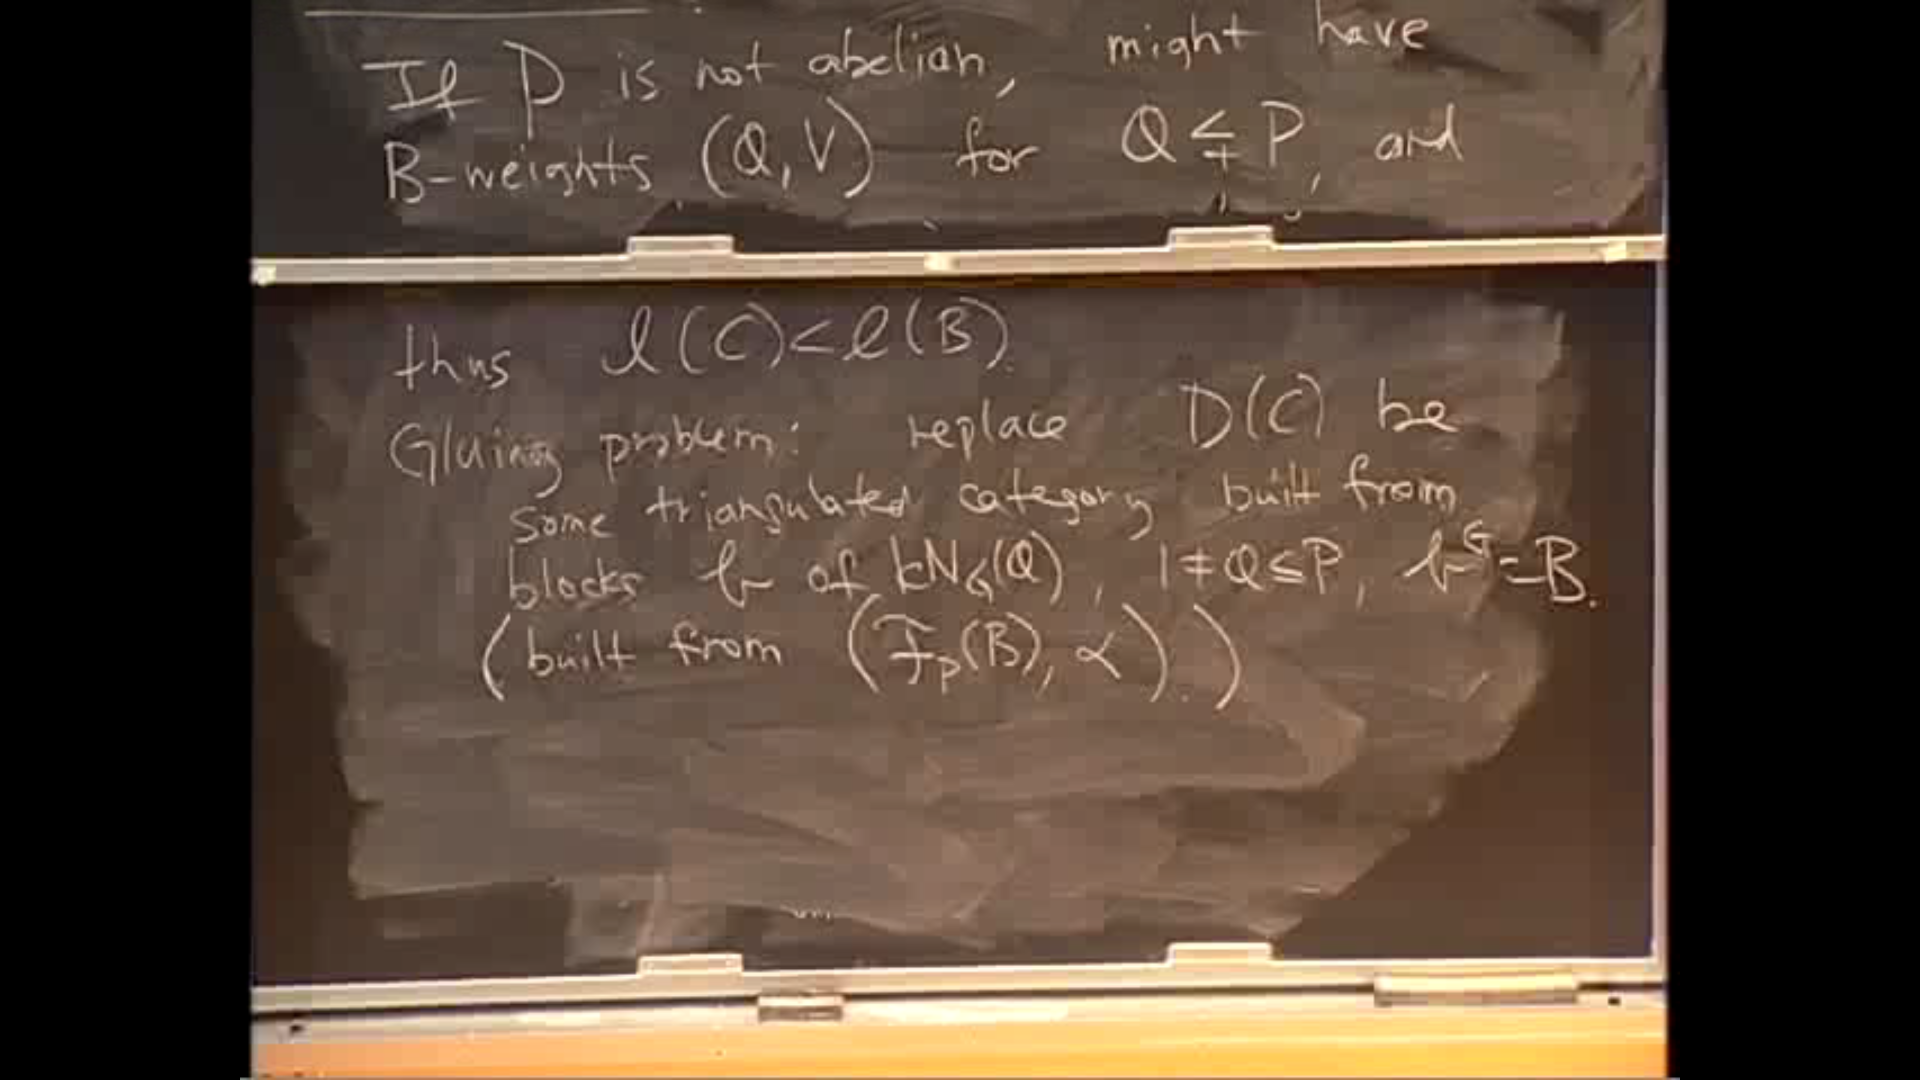 If P is not abelian, might have
B-weights (Q,V) for Q ≨ P, and
thus l(C)<l(B).
Gluing problem: replace D(C) be
some triangulated category built from
blocks b of kN_G(Q), 1≠Q≤P, b^G=B.
(built from (F_P(B), α).)